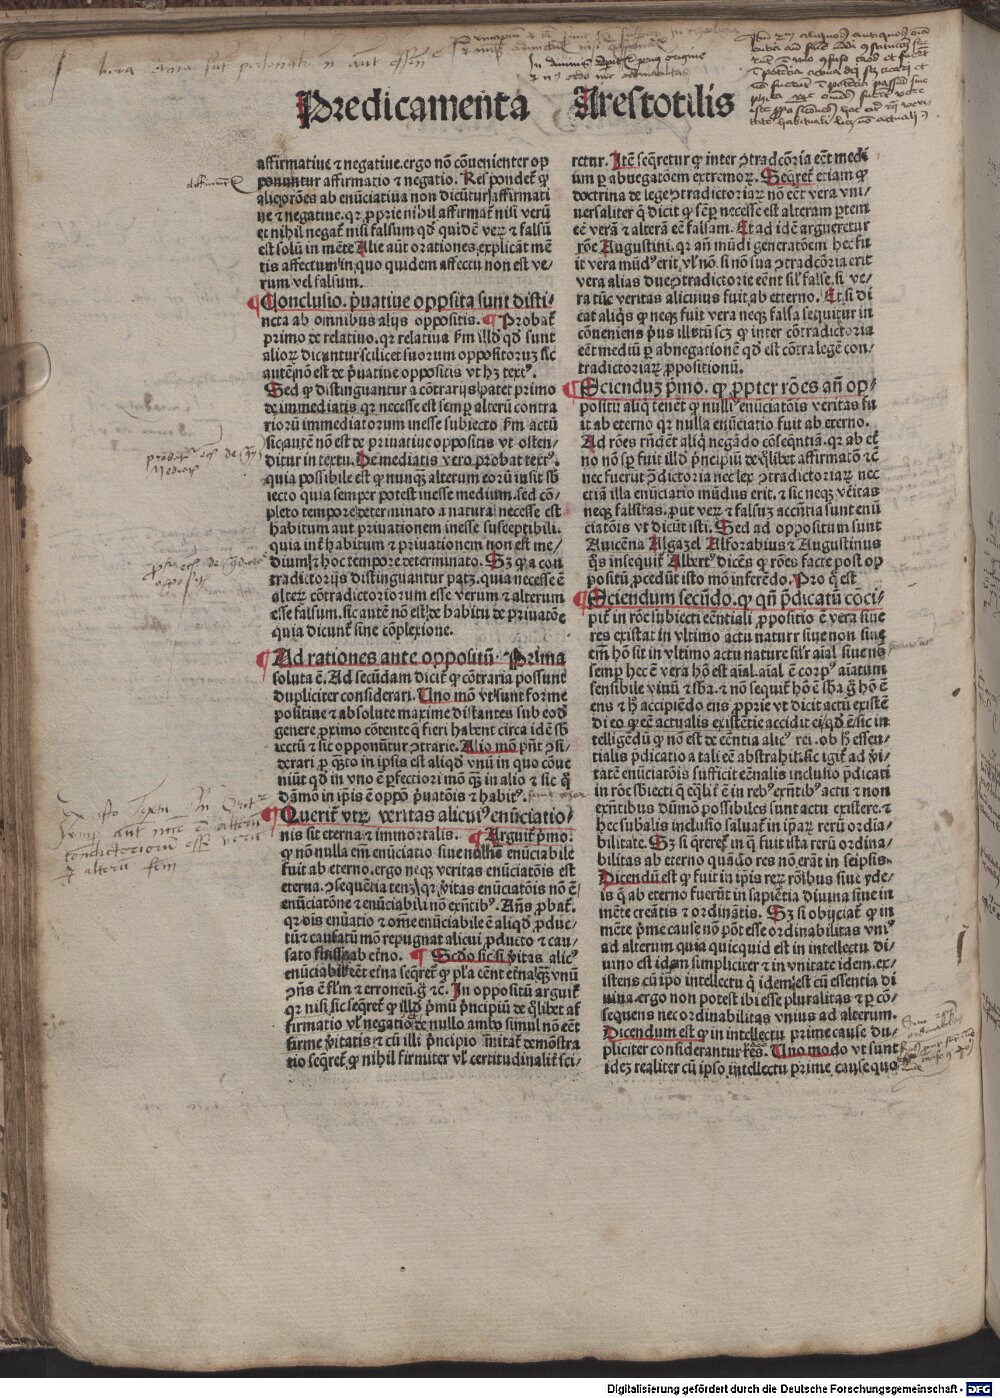 Predicamenta Arestotilis
affirmatiue ⁊ negatiue. ergo nō cōuenienter op
ponuntur affirmatio ⁊ negatio. Respondet̄ ꝙ
alie prōes ab enūciatiua non dicūtur affirmati
ue ⁊ negatiue. qꝛ ꝓprie nihil affirmat̄ nisi verū
et nihil negat̄ nisi falsum qd̄ quidē veꝝ ⁊ falsū
est solū in mēte Alie aūt orationes explicāt mē
tis affectum in quo quidem affectu non est ve⸗
rum vel falsum.
¶ Conclusio. p̄uatiue opp̄sita sunt disti⸗
ncta ab omnibus alijs oppositis. ¶ Probat̄
primo de relatiuo. qꝛ relatiua ẜm illd̄ qd̄ sunt
alioꝝ dicuntur scilicet suorum oppositoruꝫ sic
autē nō est de p̄uatiue oppositis vt hꝫ textꝰ.
Sed ꝙ distinguantur a cōtrarijs patet primo
de immediatis qꝛ necesse est semꝑ alterū contra
riorū immediatorum inesse subiecto ẜm actū
sic autē nō est de priuatiue oppositis vt osten⸗
ditur in textu. De mediatis vero probat textꝰ.
quia possibile est ꝙ nunqꝫ alterum eorū insit sb̄
iecto quia semper potest inesse medium. sed cō⸗
pleto tempore determinato a natura necesse est
habitum aut priuationem inesse susceptibili.
quia int̄ habitum ⁊ priuationem non est me⸗
dium ꝑ hoc tempore determinato. Sꝫ ꝙ a con
tradictorijs distinguantur patꝫ. quia necesse ē
alteꝝ cōtradictoriorum esse verum ⁊ alterum
esse falsum. sic autē nō est de habitu de priuatōe
quia dicunt̄ sine cōplexione.
¶ Ad rationes ante oppositū. Prima
soluta ē. Ad secūdam dicit̄ ꝙ cōtraria possunt
dupliciter considerari. Uno mō vt sunt forme
positiue ⁊ absolute maxime distantes sub eod̄
genere ꝓximo cōtente ꝙ fieri habent circa idē sb̄
iectū ⁊ sic opponūtur ꝯtrarie. Alio mō pn̄t ꝯsi⸗
derari ꝓ qꝫto in ipsis est aliqd̄ vnū in quo cōue
niūt qd̄ in vno ē ꝑfectiori mō qꝫ in alio ⁊ sic qͣ
dāmō in ip̄is ē oppō p̄uatōis ⁊ habitꝰ.
¶ Querit̄ vtꝝ veritas alicuiꝰ enūciatio⸗
nis sit eterna ⁊ immortalis. ¶ Arguit̄ p̄mo.
ꝙ nō nulla em̄ enūciatio siue nullū enūciabile
fuit ab eterno. ergo neqꝫ veritas enūciatōis est
eterna. ꝯsequētia tenꝫ qꝛ v̄itas enūciatōis nō ē
enūciatōne ⁊ enūciabili nō exn̄tibꝰ. Añs ꝓbat̄.
qꝛ oīs enūatio ⁊ om̄e enūciabile ē aliqd̄ ꝓduc⸗
tū ⁊ causatū mō repugnat alicui ꝓducto ⁊ cau⸗
sato fuisse ab et̄no. ¶ Scd̄o sic si v̄itas alicꝰ
enūciabilis eēt et̄na seq̄ret̄ ꝙ pl̄a eēnt et̄na qꝫ vnū
ꝯn̄s ē fl̄m ⁊ erroneū. gͦ ⁊c. In oppositū arguit̄
qꝛ nisi sic seq̄ret̄ ꝙ illd̄ p̄mū p̄ncipiū de q̄libet af
firmatio vl̓ negatio de nullo ambo simul nō eēt
firme v̄itatis ⁊ cū illi p̄ncipio īnitat̄ demōstra
tio seq̄ret̄ ꝙ nihil firmiter vl̓ certitudinalit̄ sci⸗
retur. Itē seq̄retur ꝙ inter ꝯtradcōria eēt medi
um ꝑ abnegatōem extremoꝝ. Seq̄ret̄ etiam ꝙ
doctrina de lege ꝯtradictoriaꝝ nō eēt vera vni⸗
uersaliter q̄ dicit ꝙ sēꝑ necesse est alteram ꝑtem
eē verā ⁊ alterā eē falsam. Et ad idē argueretur
rōe Augustini. qꝛ añ mūdi generatōem hec fu
it vera mūdꝰ erit, vl̓ nō. si nō sua ꝯtradcōria erit
vera alias due ꝯtradictorie eēnt sil̓ false. si ve⸗
ra tūc veritas alicuius fuit ab eterno. Et si di
cat aliq̄s ꝙ neqꝫ fuit vera neqꝫ falsa sequitur in
cōueniens p̄us illatū scꝫ ꝙ inter cōtradictoria
eēt mediū ꝑ abnegationē qd̄ est cōtra legē con⸗
tradictoriaꝝ ꝓpositionū.
¶ Sciendūꝫ p̄mo. ꝙ ꝓpter rōes añ op⸗
positū aliq̄ tenēt ꝙ nulliꝰ enūciatōis veritas fu
it ab eterno qꝛ nulla enūciatio fuit ab eterno.
Ad rōes rn̄dent aliq̄ negādo cōseqn̄tiā. qꝛ ab et̄
no nō sꝑ fuit illd̄ p̄ncipiū de q̄libet affirmatō ⁊c
nec fuerūt ꝯdictoria nec lex ꝯtradictoriaꝝ nec
etiā illa enūciatio mūdus erit. ⁊ sic neqꝫ v̄eitas
neqꝫ falsitas. ꝓut veꝝ ⁊ falsuꝫ accn̄tia sunt enū
ciatōis vt dicūt isti. Sed ad oppositum sunt
Auicēna Algazel Alforabius ⁊ Augustinus
q̄s insequit̄ Albertꝰ dicēs ꝙ rōes facte post op
positū ꝓcedūt isto mō inferēdo. Pro q̄ est
¶ Sciendum secūdo. ꝙ qn̄ p̄dicatū cōci⸗
pit̄ in rōe subiecti eēntiali ꝓpositio ē vera siue
res existat in vltimo actu nature siue non siue
em̄ hō sit in vltimo actu nature sil̓r aīal siue nō
semꝑ hec ē vera hō est aīal. aīal ē corpꝰ aīatum
sensibile viuū ⁊ sb̄a. ⁊ nō sequit̄ hō ē sb̄a gͦ hō ē
ens ⁊ h̄ accipiēdo ens ꝓprie vt dicit actū existē
di eo ꝙ eē actualis existētie accidit ei qd̄ ē sic in
telligēdū ꝙ nō est de eēntia alicꝰ rei. ob h̄ essen⸗
tialis p̄dicatio a tali eē abstrahit. sic igit̄ ad v̄i⸗
tatē enūciatōis sufficit eēnalis inclusio p̄dicati
in rōe sb̄iecti q̄ eq̄li ē in rebꝰ exn̄tibꝰ actu ⁊ non
exn̄tibus dūmō possibiles sunt actu existere. ⁊
hec subalis inclusio saluat̄ in ip̄aꝝ rerū ordia⸗
bilitate. Sꝫ si q̄reret̄ in q̄ fuit ista rerū ordina⸗
bilitas ab eterno quādo res nō erāt in seipsis⸗
Dicendū est ꝙ fuit in ip̄is reꝝ rōibus siue yde⸗
is q̄ ab eterno fuerūt in sapiētia diuina siue in
mēte creātis ⁊ ordinātis. Sꝫ si obijciat̄ ꝙ in
mēte p̄me cause nō pōt esse ordinabilitas vniꝰ
ad alterum quia quicquid est in intellectu di⸗
uino est idem simpliciter ⁊ in vnitate idem. ex⸗
istens cū ip̄o intellectu q̄ idem est cū essentia di
uina. ergo non potest ibi esse pluralitas ⁊ ꝑ cō⸗
sequens nec ordinabilitas vnius ad alterum.
Dicendum est ꝙ in intellectu prime cause du⸗
pliciter considerantur res. Uno modo vt sunt
ideꝫ realiter cū ipso intellectu prime cause quo
Digitalisierung gefördert durch die Deutsche Forschungsgemeinschaft - DFG